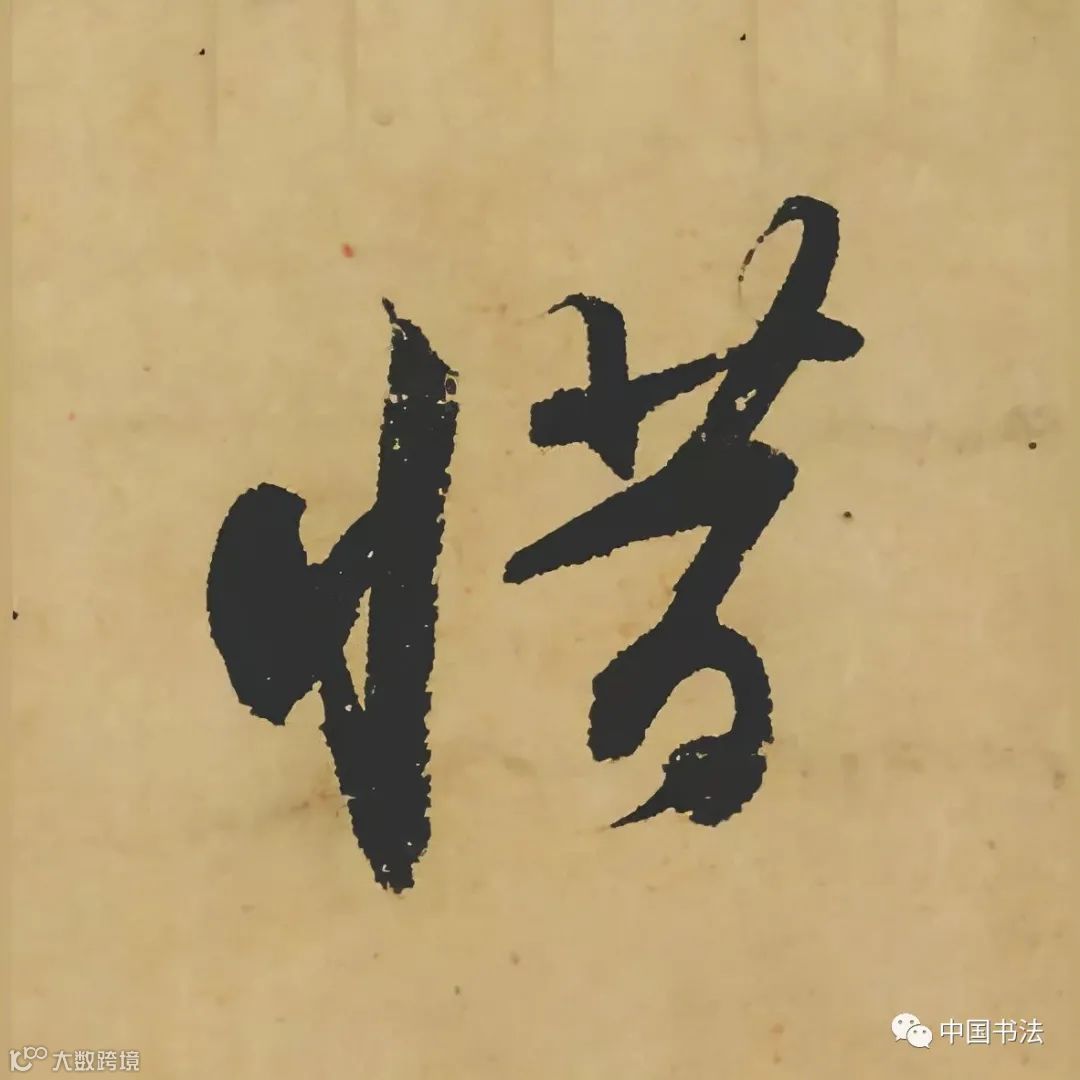 惜
中国书法
大数跨境